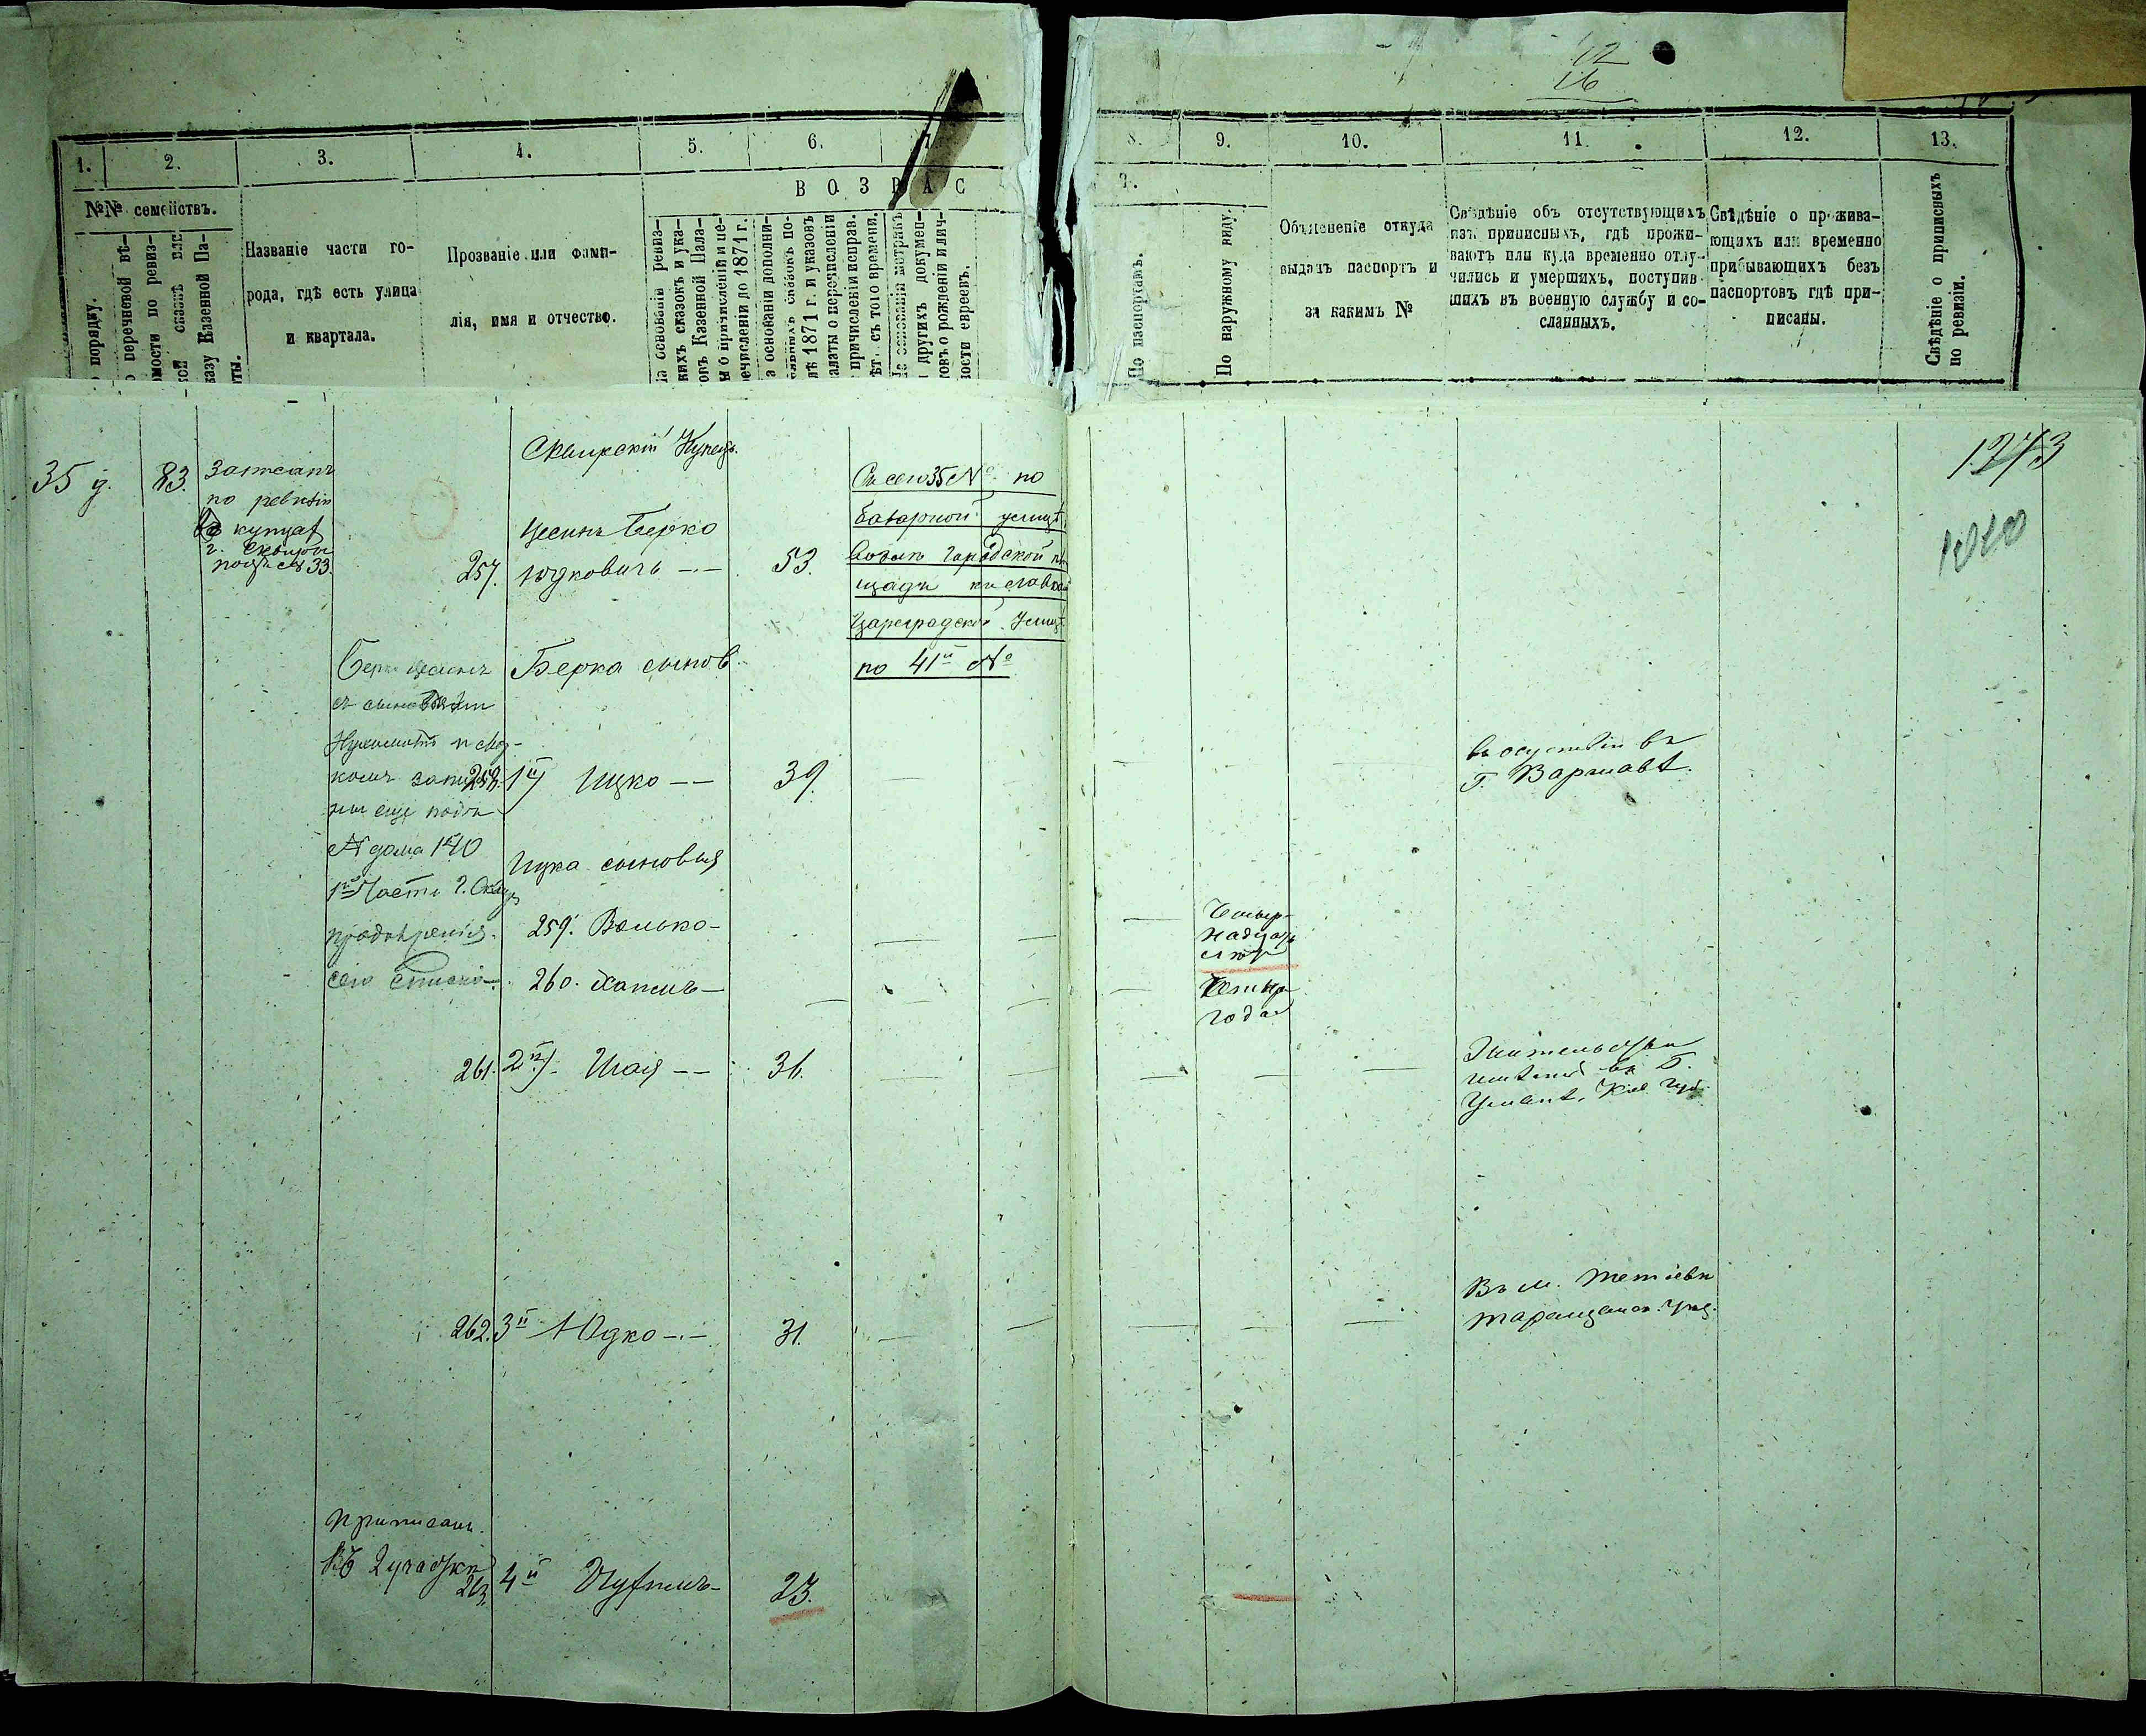 12
16
1.
2.
3.
4.
5.
6.
7
8.
9.
10.
11.
12.
13.
ВОЗРАС
Т.
№№ семействъ.
порядку.
перечневой вѣ-
домости по ревиз-
ской сказкѣ или
казу Казенной Па-
ты.
Названіе части го-
рода, гдѣ есть улица
и квартала.
Прозваніе или фами-
лія, имя и отчество.
На основаніи ревиз-
скихъ сказокъ и ука-
зовъ Казенной Пала-
ты о причисленіи и пе-
речисленіи до 1871 г.
На основаніи дополни-
тельныхъ сказокъ по-
слѣ 1871 г. и указовъ
палаты о перечисленіи
причисленіи исправ.
лѣтъ съ того времени.
На основаніи метрикъ
и другихъ докумен-
товъ о рожденіи и лич-
ности евреевъ.
По паспортамъ.
По наружному виду.
Объясненіе откуда
выданъ паспортъ и
за какимъ №
Свѣдѣніе объ отсутствующихъ
изъ приписныхъ, гдѣ прожи-
ваютъ или куда временно отлу-
чились и умершихъ, поступив-
шихъ въ военную службу и со-
сланныхъ.
Свѣдѣніе о прожива-
ющихъ или временно
прибывающихъ безъ
паспортовъ гдѣ при-
писаны.
Свѣдѣніе о приписныхъ
по ревизіи.
Сквирскій Купецъ.
1273
1010
35 д.
83.
Записанъ
по ревизіи
въ купцах
г. Сквиры
подъ № 33.
257.
Цесинъ Берко
Юдковичъ
53.
Съ сего 35 № по
базарной улицѣ
возлѣ городской пло
щади
Цареградской Улицѣ
по 41й №
Берко Цесинъ
съ сыновьями
Нухимомъ и
комъ запи
ны еще подъ
№ дома 140
1й Части г. Сквиры
продолженія
сего списка
Берка сынов.
258. 1й) Ицко
39.
въ отсутствіи въ
Г. Варшавѣ.
Ицка сыновья
259. Волько
Четыр-
надцать
лѣтъ
260. Хаимъ
Четыр
года
261. 2й) Шая
36.
Жительство
имѣетъ въ Г.
Уманѣ. Кіе Губ.
262. 3й Юдко
31.
Въ м. Тетіевѣ
Таращанск. уѣз.
приписанъ
къ 2 участку
263. 4й Нухимъ
23.